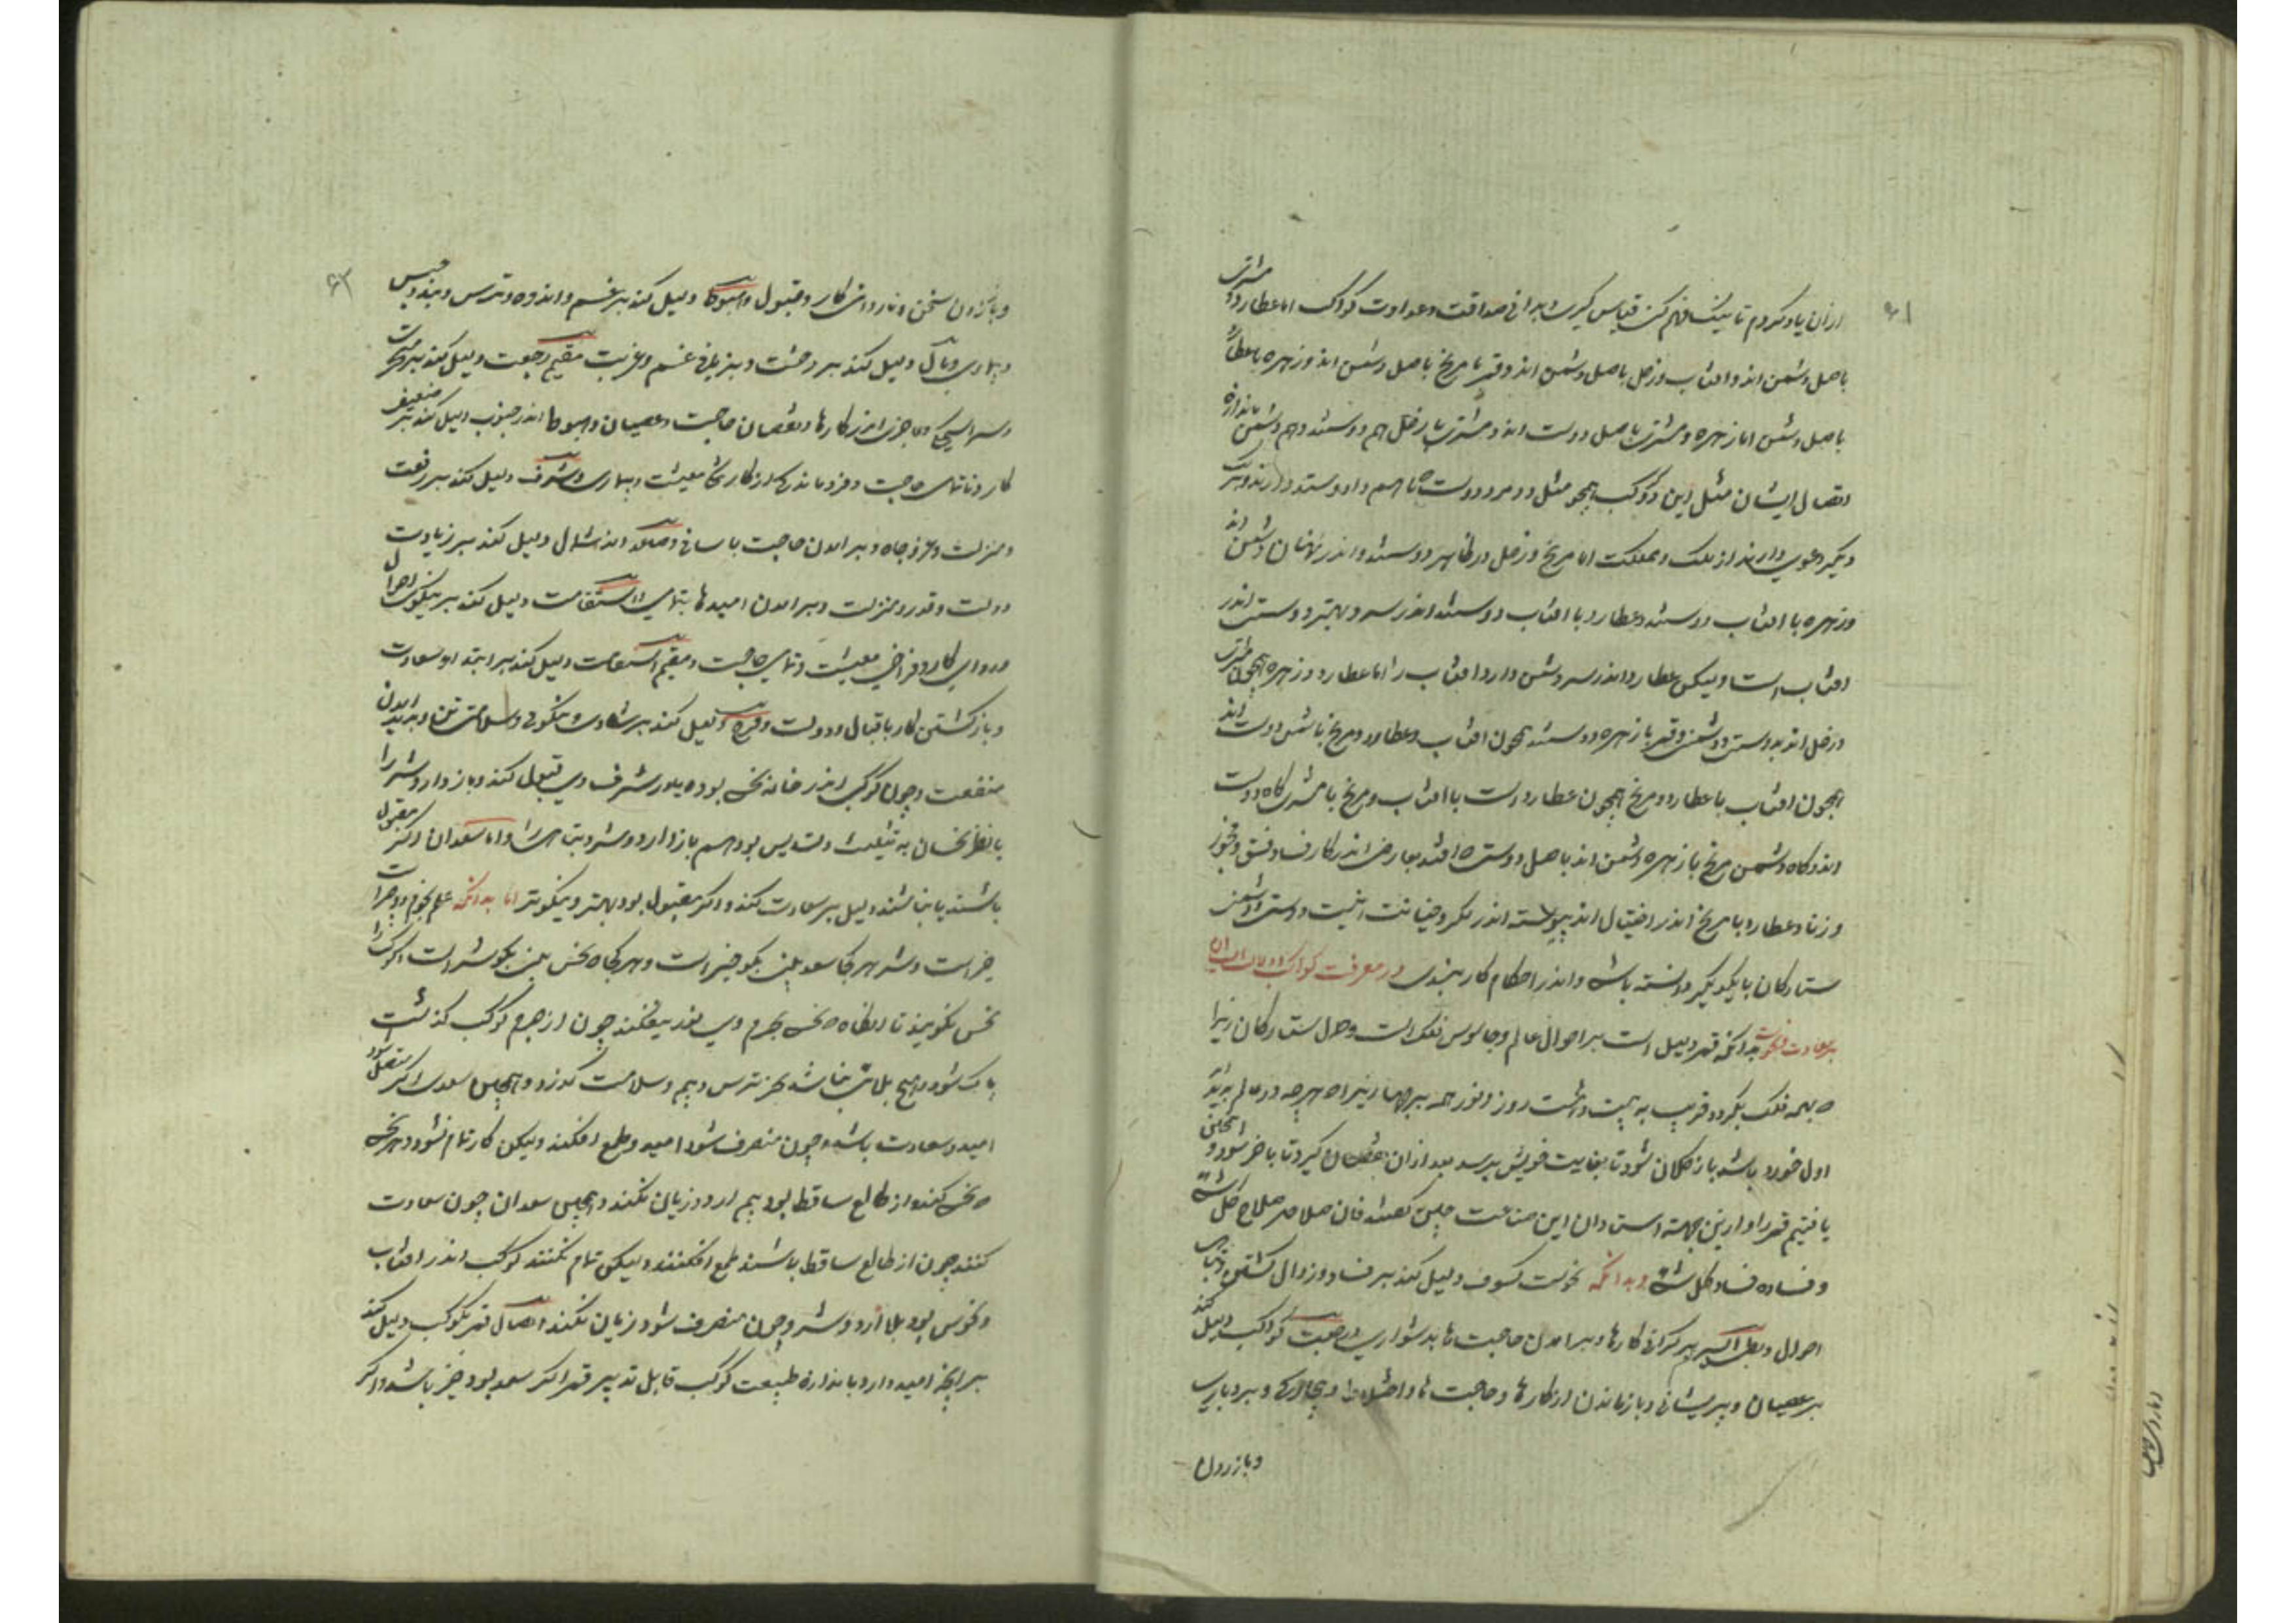 ۶۱
ازان یاد کردم تا نیک فهم کنی قیاس گیری و بدانی صداقت و عداوت کواکب اما عطارد و مشتری
باصل دشمن اند و افتاب و زحل باصل دشمن اند و قمر با مریخ باصل دشمن اند و زهره با عطارد
باصل دشمن اما زهره و مشتری باصل دوست اند و مشتری با زحل هم دوستند و هم دشمن باندازه
اتصال ایشان مثل این دو کوکب همچو مثل دو مرد دوست که باهم داد و ستد دارند و بر یک
دیگر دعوی دارند از ملک و مملکت اما مریخ و زحل در ظاهر دوستند و اندر نهان دشمن اند
و زهره با افتاب دوستند و عطارد با افتاب دوستند اندر سر و بهتر دوست اندر
افتاب است ولیکن عطارد اندر سر دشمن دارد افتاب را اما عطارد و زهره همچون مشتری
و زحل اند بدوستی و دشمنی و قمر با زهره دوستند همچون افتاب و عطارد و مریخ با شمس دوست اند
همچون افتاب با عطارد و مریخ همچون عطارد است با افتاب و مریخ با مشتری گاه دوست
اند و گاه دشمن مریخ با زهره دشمن اند باصل دوست افتند بعارض اندر کار فساد و فسق و فجور
و زنا و عطارد با مریخ اندر احتیال اند پیوسته اندر مکر و خیانت اینست دوستی و دشمنی
ستارگان با یکدیگر دانسته باشی و اندر احکام کار بندی در معرفت کواکب
بر سعادت و نحوست بدانکه قمر دلیل است بر احوال عالم و جاسوس فلک است و حال ستارگان زیرا
که همه فلک بگردد قریب به بیست و هشت روز و نور همه بر جهان زیرا که هرچه در عالم پدید آید
اول خورد باشد باز کلان شود تا بغایت خویش برسد بعد ازان نقصان گیرد تا باخر شود و همچنین
یافتیم قمر را و ازین جهت استادان این صناعت چنین گفتند فان صلاحه صلاح کل شئ
و فساده فساد کل شئ و بدانکه نحوست کسوف دلیل کند بر فساد و زوال گشتن و تباهی
احوال و بطئ السیر بر گرانی کارها و برامدن حاجت ها بدشواری و رجعت کواکب دلیل کند
بر عصیان و پریشانی و بازماندن از کارها و حاجت ها و اختلاط و بیچارگی و بر دبار
و باز زدن
۶۲
و باز زدن سخن و ناروائی کار و قبول و هبوط دلیل کند بر غم و اندوه و ترس و بند و حبس
و بیماری و وبال دلیل کند بر وحشت و غم و غربت مقیم رجعت دلیل کند بر
و عاجزی اندر کارها و نقصان حاجت و عصیان و هبوط اندر جنوب دلیل کند بر ضعیف
کار و ناتمامی حاجت و فرو ماندن از کار معیشت و بیماری و شرف دلیل کند بر رفعت
و منزلت و عز و جاه و برامدن حاجت باسانی و صعود اندر شمال دلیل کند بر زیادت
دولت و قدر و منزلت و برامدن امیدها بتمامی و استقامت دلیل کند بر نیکوی احوال
و روای کار و فراخی معیشت و تمامی حاجت و مقیم استقامت دلیل کند بر ابتداء سعادت
و بازگشتن کار باقبال و دولت و فرح دلیل کند بر شادی و نیکوئی و سلامتی تن و پدید امدن
منفعت و چون کوکب اندر خانه نحس بود یا در شرف وی قبول کند و باز دارد شر را
یا نظر نحسان به تثلیث و تسدیس بود هم باز دارد و شر و تباهی را و اما سعدان اگر مقبول
باشند یا نباشند دلیل بر سعادت کند و اگر مقبول بود بهتر و نیکوتر اما بدانکه علم نجوم دو چیز است
خیر است و شر هر کجا سعد بینی بگو خیر است و هر کجا نحس بینی بگو شر است کوکب را
نحس نگویند تا انگاه که نحس بجرم وی نور بیفکند چون از جرم کوکب گذشت
پاک شود و هیچ بلائی نباشد بجز ترس و بیم و سلامت گذرد و همچنین سعدی اگر متصل شود
امید و سعادت باشد و چون منصرف شود امید و طمع افکند ولیکن کار تمام نشود و هر نحس
که نحس کند از طالع ساقط بود بیم ارد و زیان نکند و همچنین سعدان چون سعادت
کنند چون از طالع ساقط باشند طمع افکنند ولیکن تمام نکنند کوکب اندر افتاب
و نحوس بود بلا ارد و شر و چون منصرف شود زیان نکند اتصال قمر بکوکب دلیل کند
بر انچه امید دارد باندازه طبیعت کوکب قابل تدبیر قمر اگر سعد بود خیر باشد و اگر